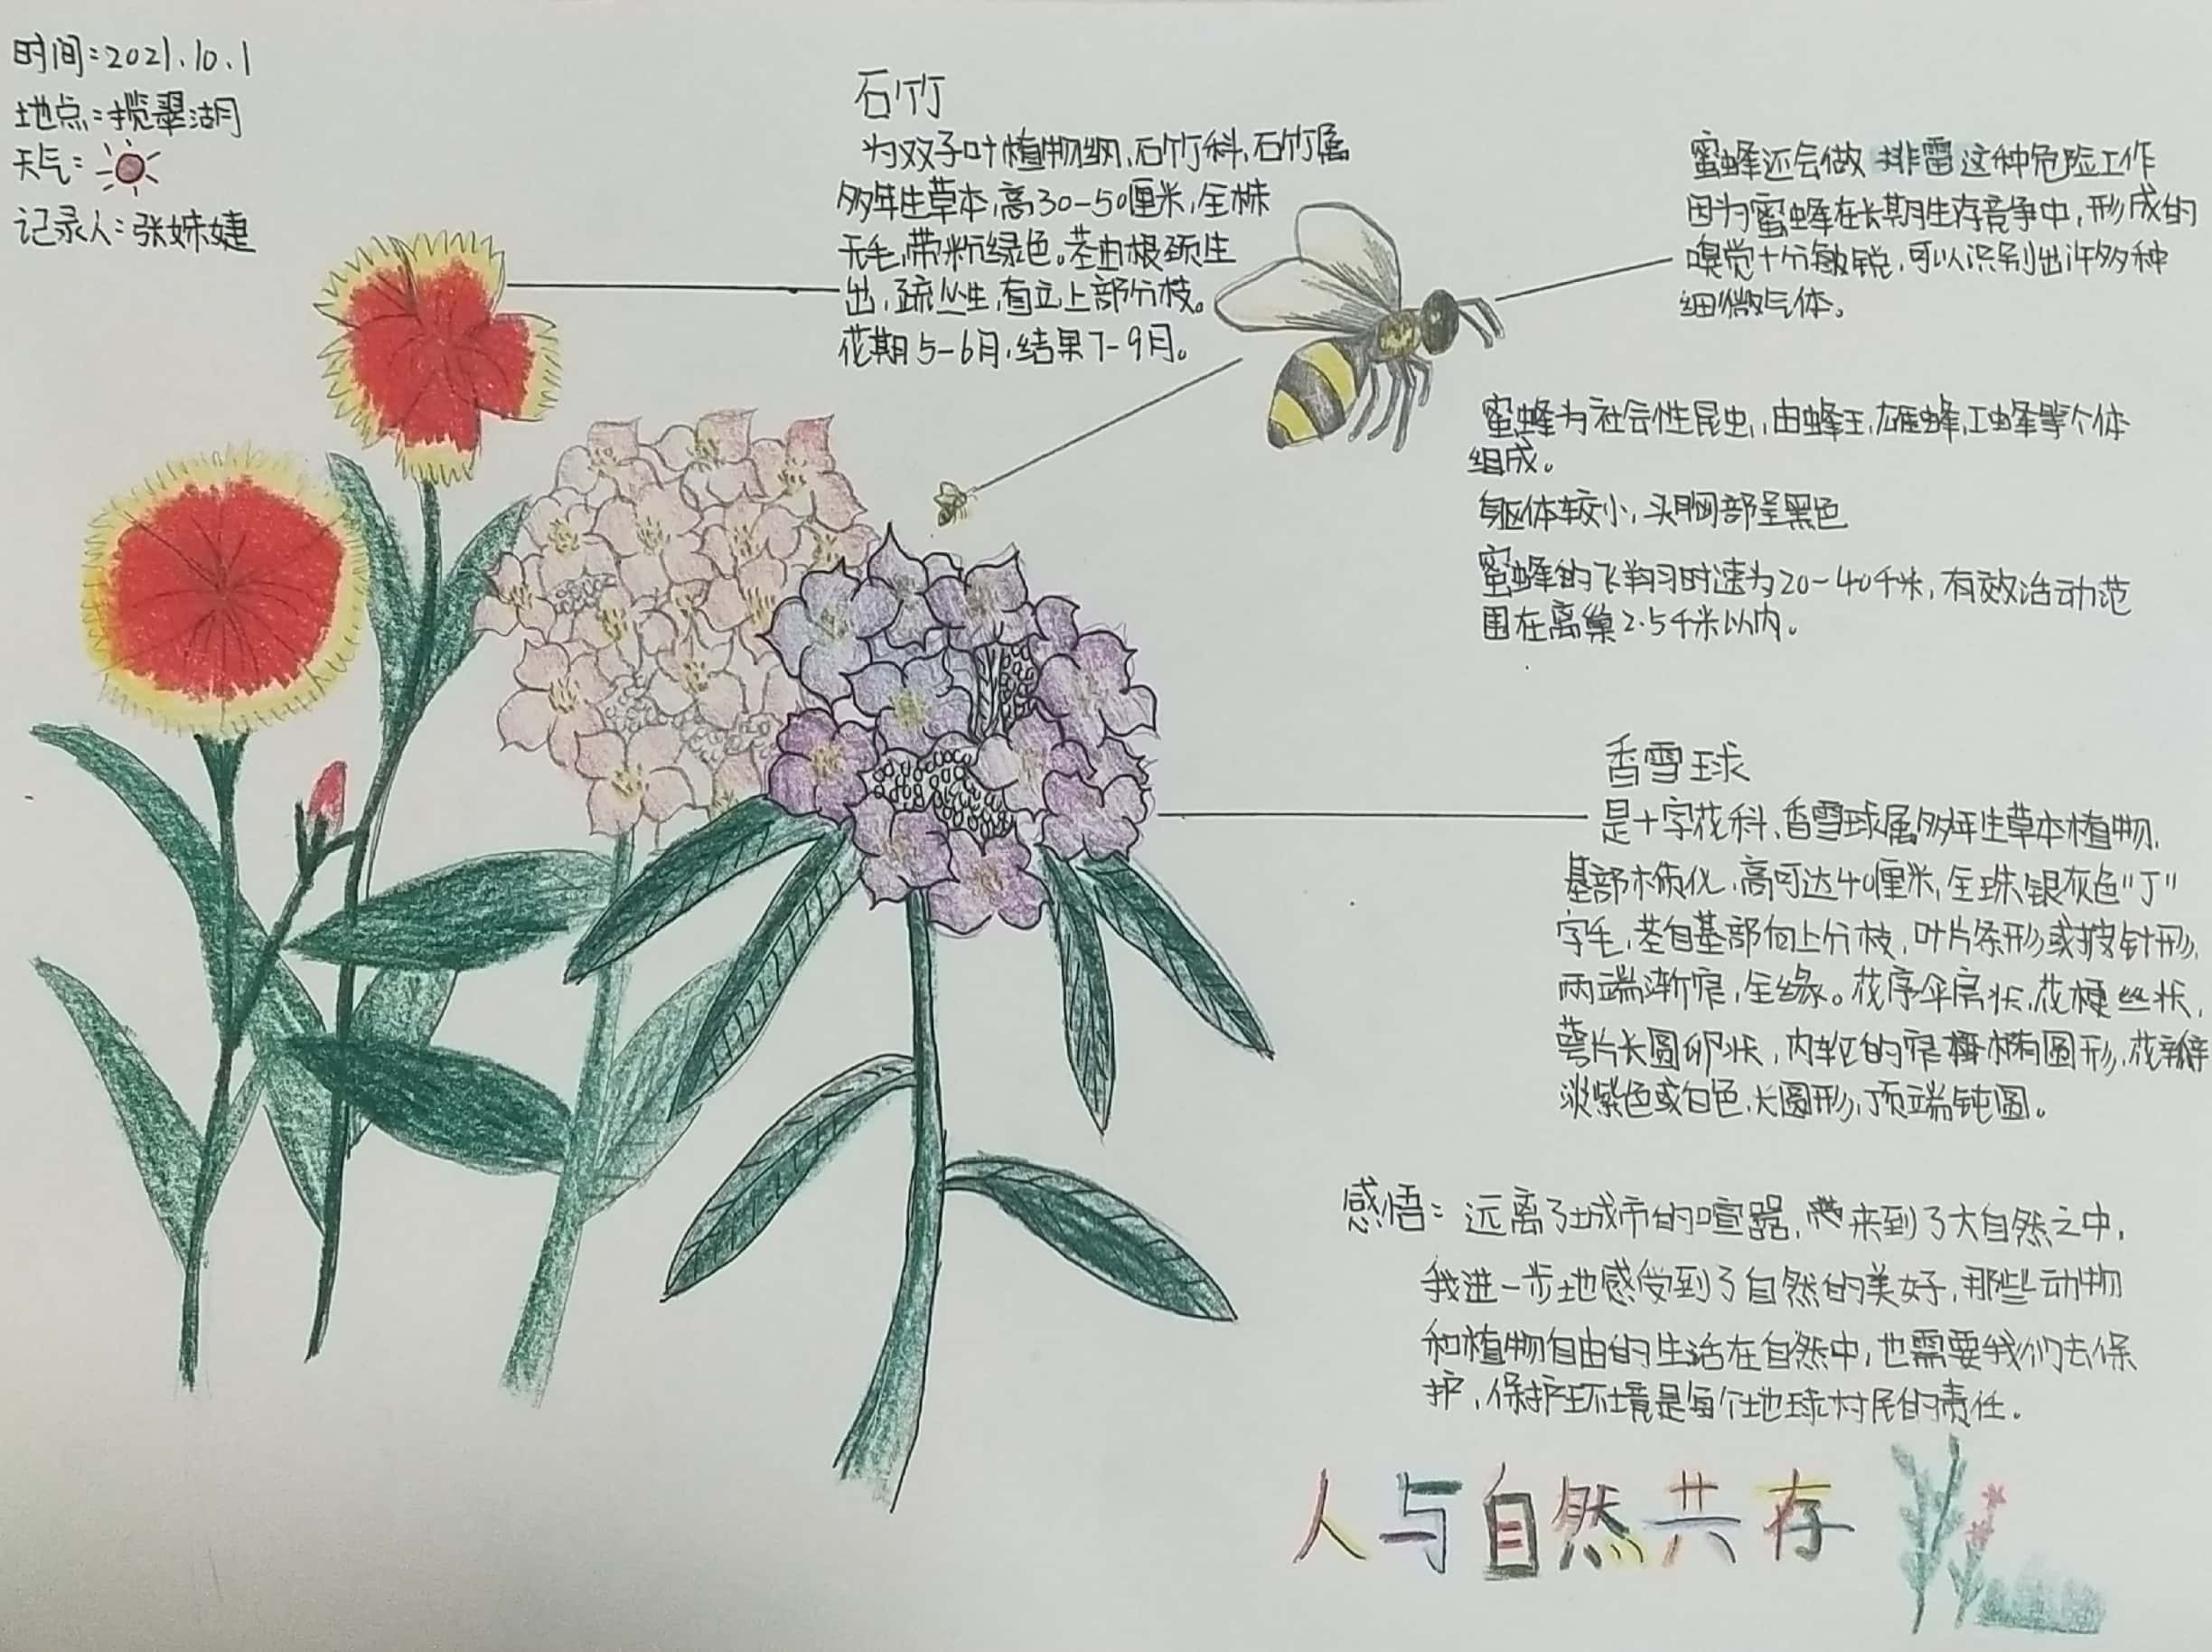 时间:2021.10.1
地点:揽翠湖
天气:
记录人:张姝婕
石竹
为双子叶植物纲、石竹科、石竹属
多年生草本,高30-50厘米,全株
无毛,带粉绿色。茎由根颈生
出,疏丛生,直立上部分枝。
花期5-6月,结果7-9月。
蜜蜂还会做排雷这种危险工作
因为蜜蜂在长期生存竞争中,形成的
嗅觉十分敏锐,可以识别出许多种
细微气体。
蜜蜂为社会性昆虫,由蜂王,雄蜂,工蜂等个体
组成。
躯体较小,头胸部呈黑色
蜜蜂的飞翔时速为20-40千米,有效活动范
围在离巢2.5千米以内。
香雪球
是十字花科、香雪球属多年生草本植物,
基部木质化,高可达40厘米,全珠银灰色"丁"
字毛,茎自基部向上分枝,叶片条形或披针形,
两端渐窄,全缘。花序伞房状,花梗丝状,
萼片长圆卵状,内轮的窄椭圆形,花瓣
淡紫色或白色,长圆形,顶端钝圆。
感悟:远离了城市的喧嚣,来到了大自然之中,
我进一步地感受到了自然的美好,那些动物
和植物自由的生活在自然中,也需要我们去保
护,保护环境是每个地球村民的责任。
人与自然共存